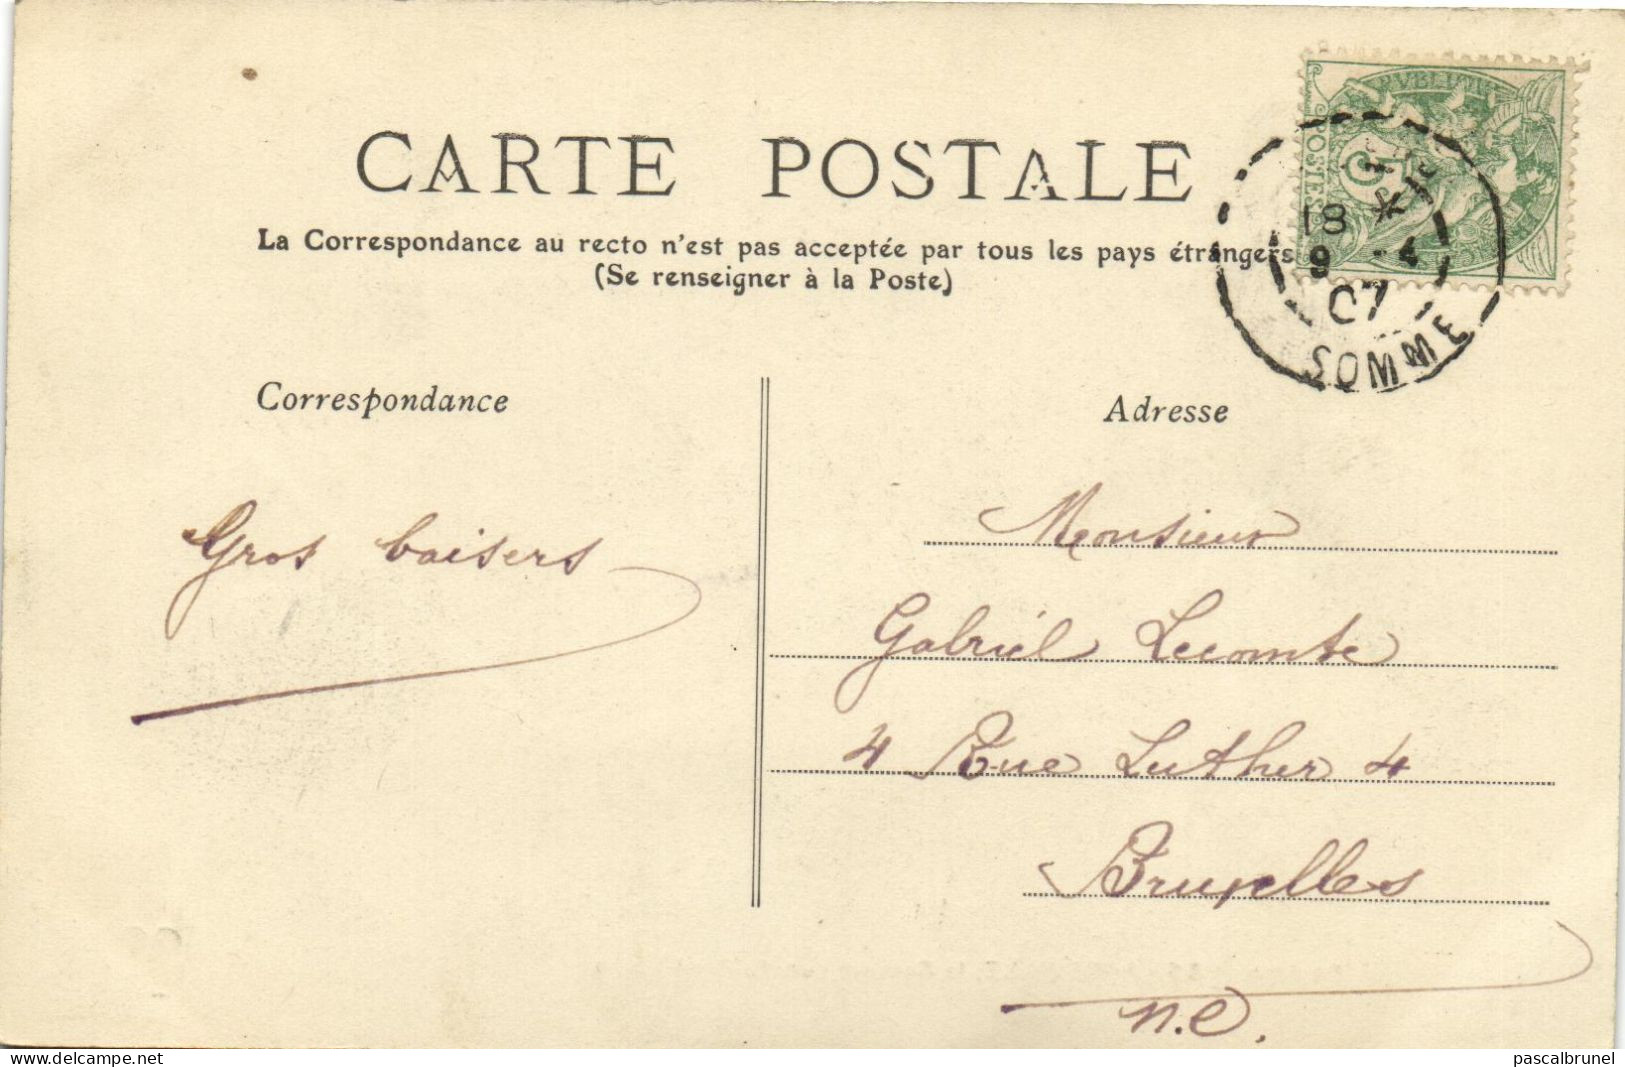 CARTE POSTALE
La Correspondance au recto n'est pas acceptée par tous les pays étrangers
(Se renseigner à la Poste)
RÉPUBLIQUE
POSTES
5
18 *
9 -4
07
SOMME
Correspondance
Adresse
Gros baisers
Monsieur
Gabriel Lecomte
4 Rue Luther 4
Bruxelles
N.E.
www.delcampe.net
pascalbrunel